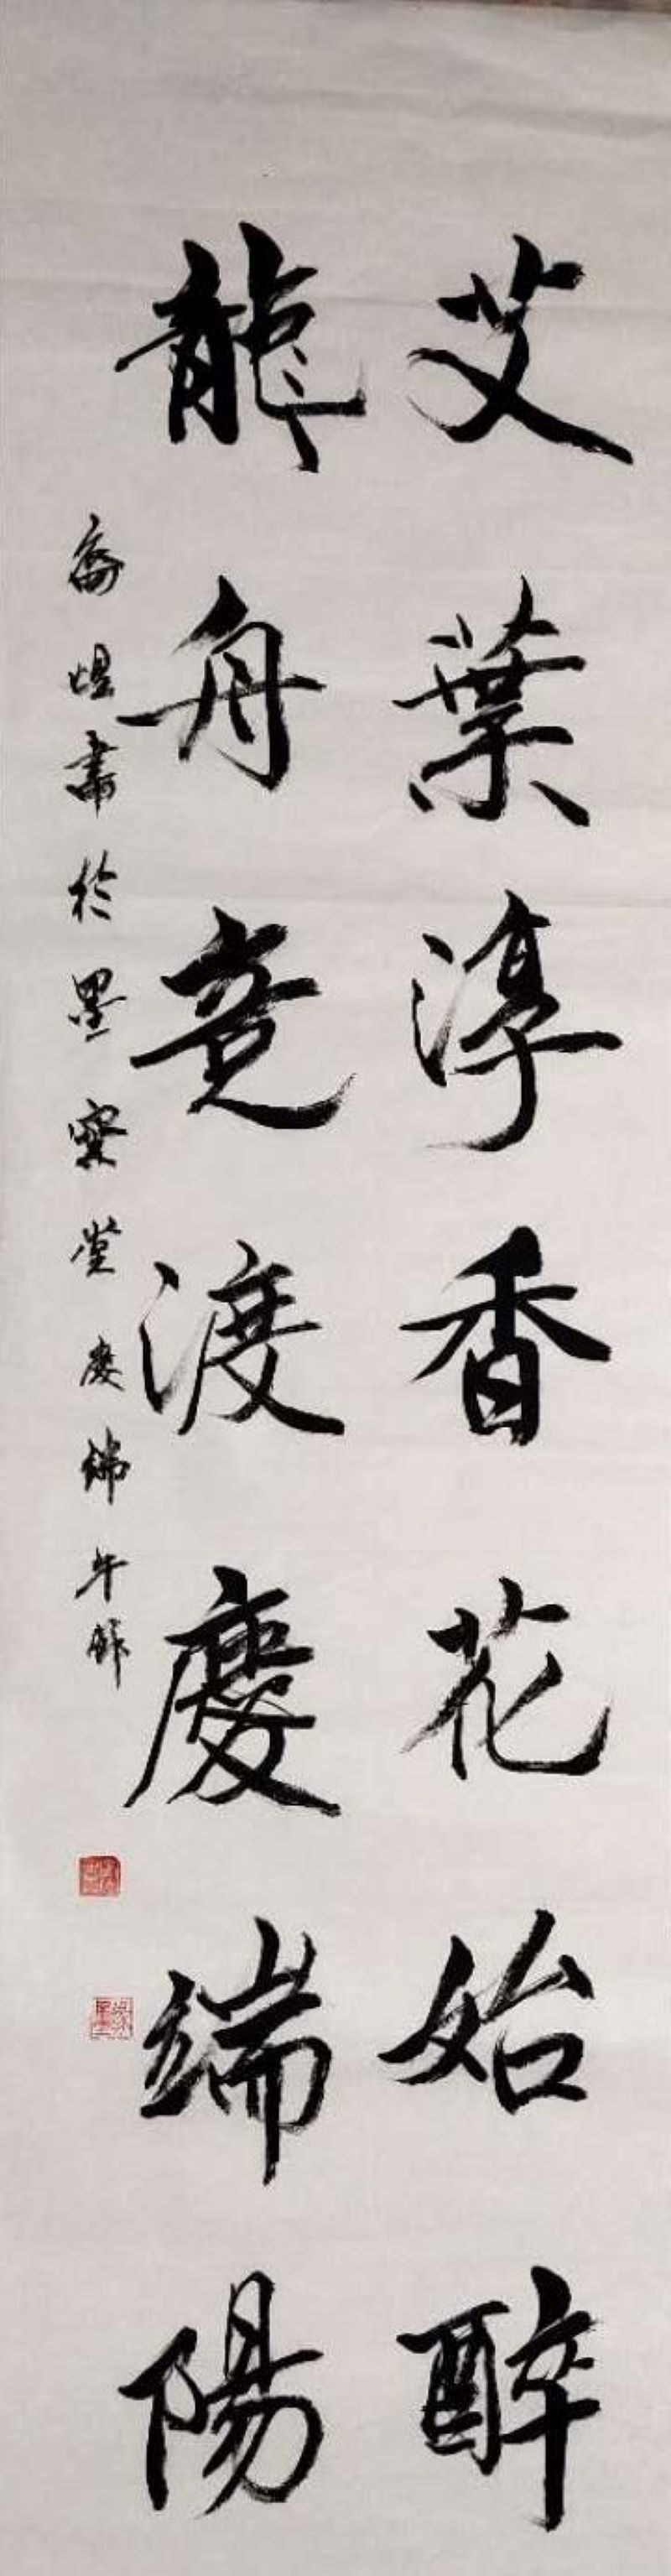 艾葉淳香花始醉
龍舟竞渡慶端陽
書於墨寶堂慶端午節